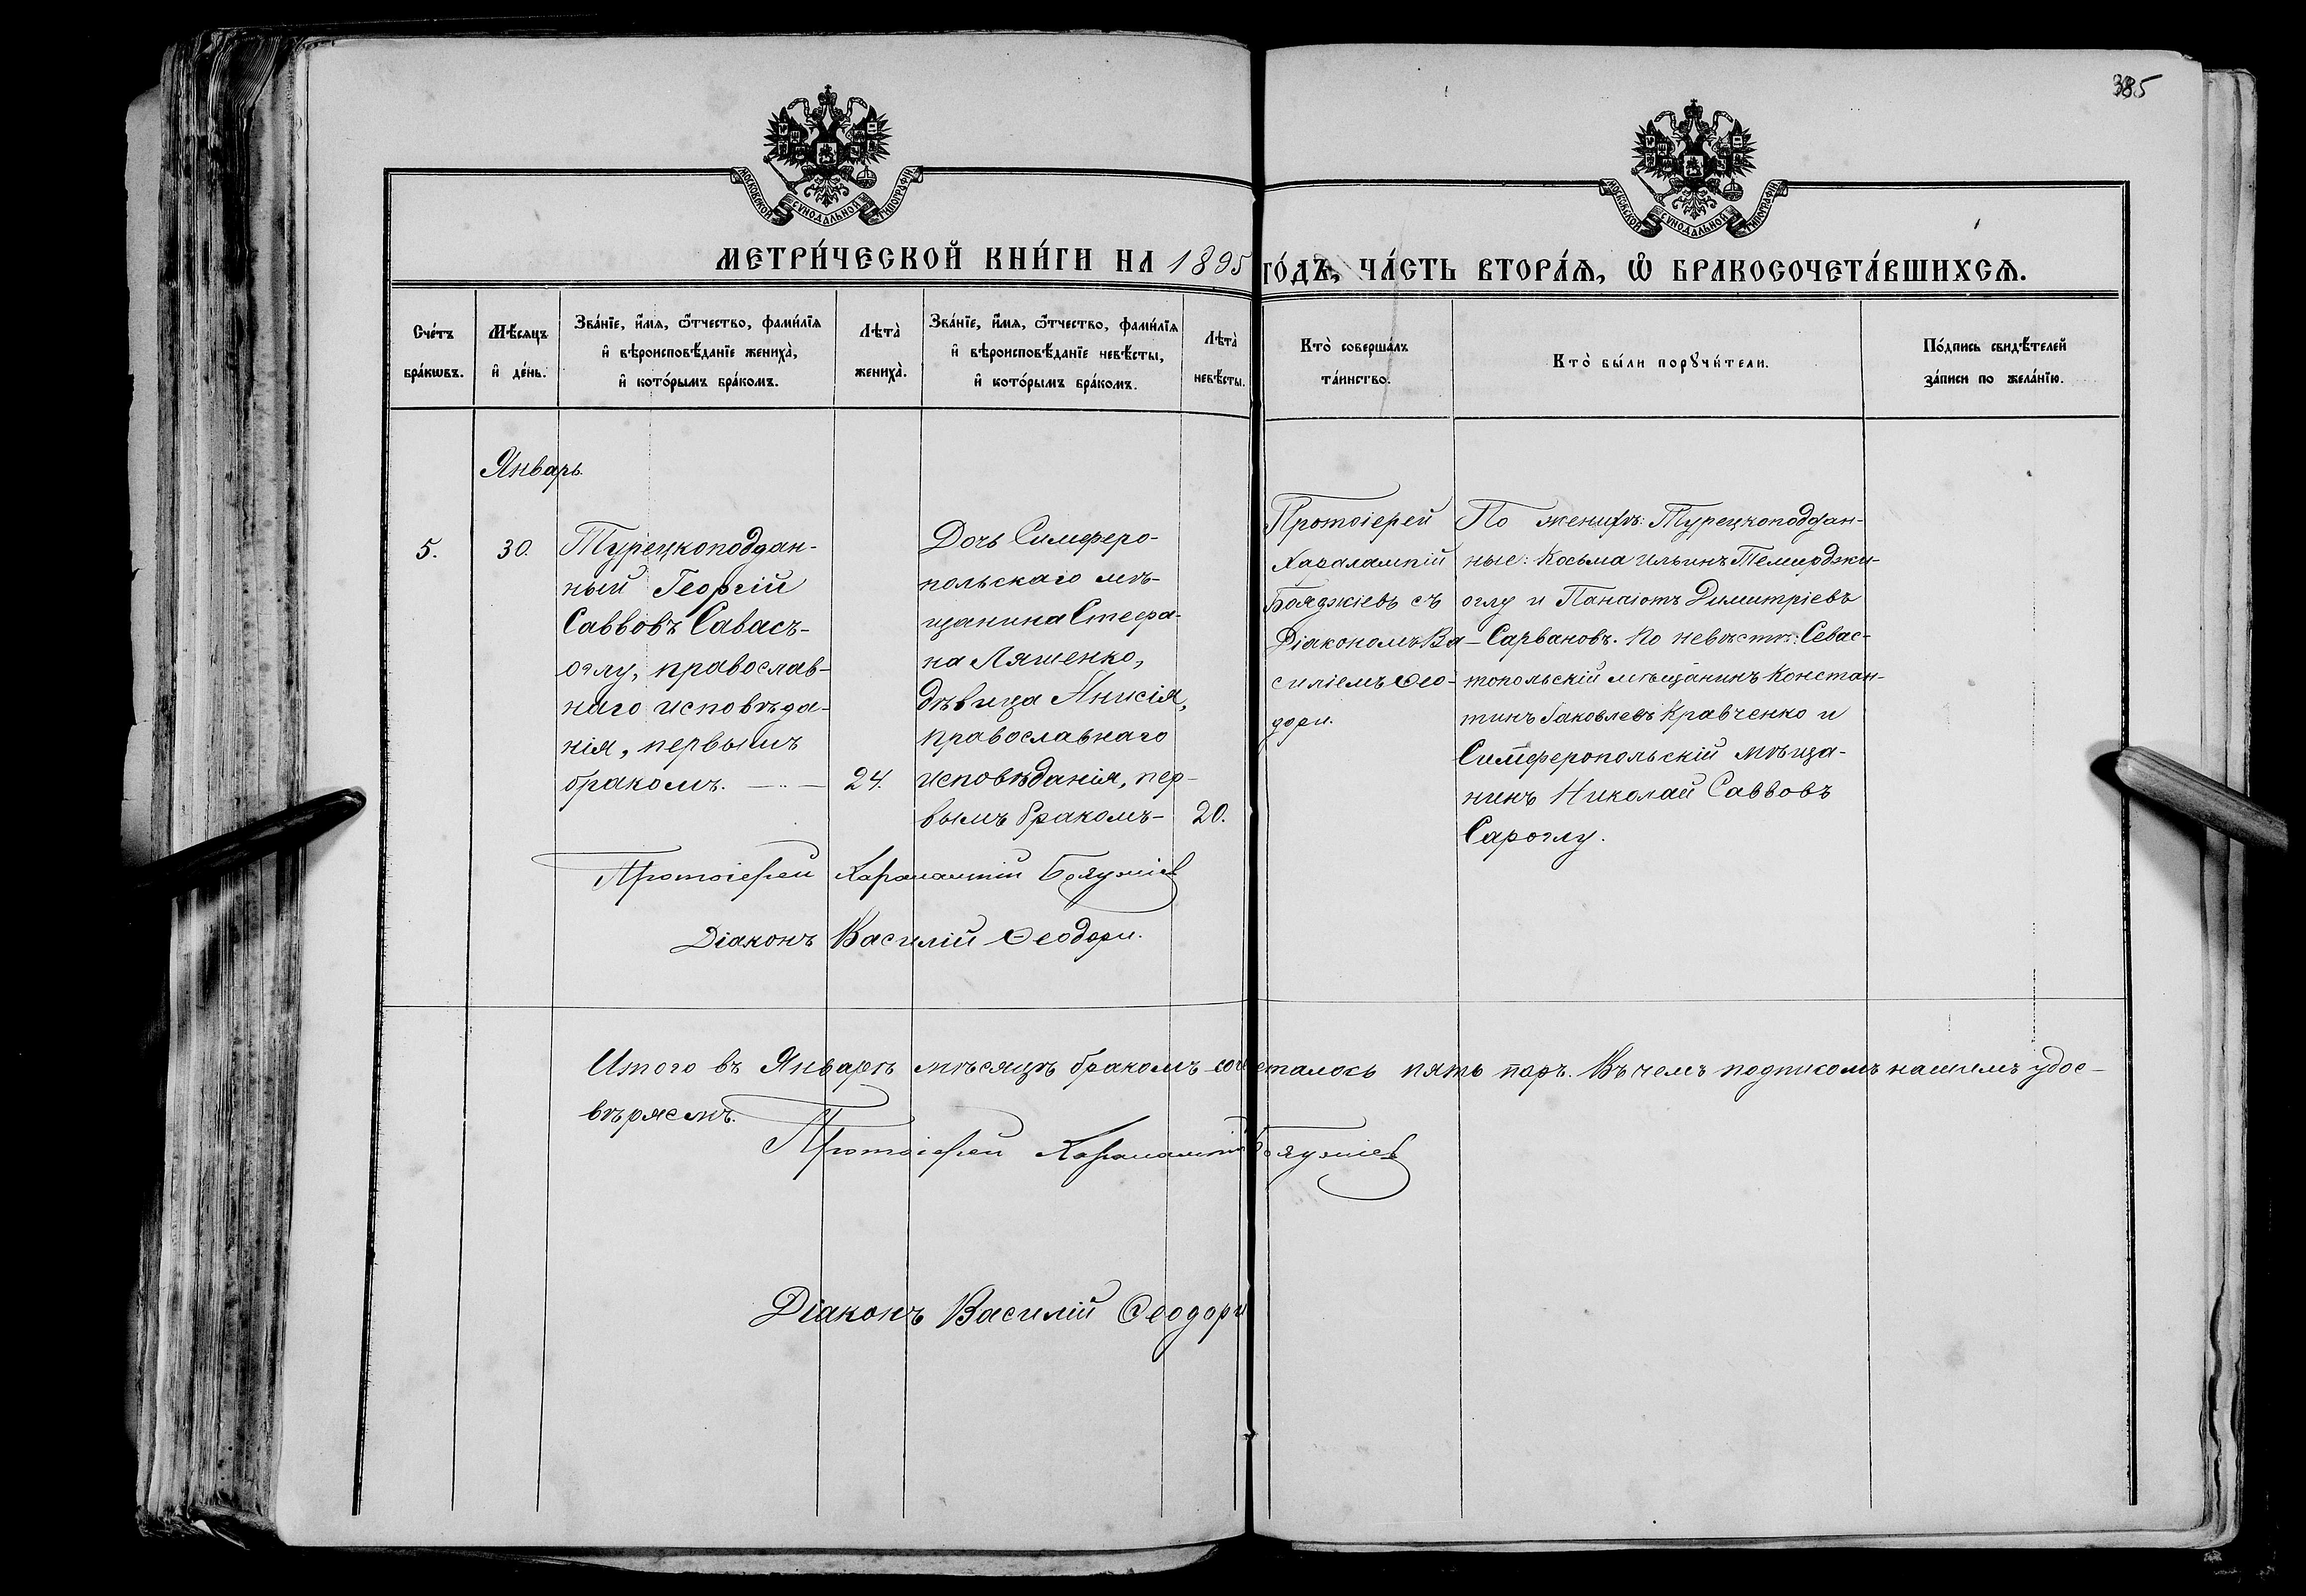 385
МОСКОВСКОЙ СУНОДАЛЬНОЙ ТИПОГРАФІИ
МОСКОВСКОЙ СУНОДАЛЬНОЙ ТИПОГРАФІИ
МЕТРИ́ЧЕСКОЙ КНИ́ГИ НА 1895 ГО́ДЪ, ЧА́СТЬ ВТОРА́Ѧ, Ѽ БРАКОСОЧЕТА́ВШИХСѦ.
Сче́тъ
бра́кѡвъ.
Мѣ́сѧцъ
и҆ де́нь.
Зва́нїе, и҆́мѧ, ѻ҆́тчество, фами́лїѧ
и҆ вѣроисповѣ́данїе жениха̀,
и҆ кото́рымъ бра́комъ.
Лѣта̀
жениха̀.
Зва́нїе, и҆́мѧ, ѻ҆́тчество, фами́лїѧ
и҆ вѣроисповѣ́данїе невѣ́сты,
и҆ кото́рымъ бра́комъ.
Лѣта̀
невѣ́сты.
Кто̀ соверша́лъ
та́инство.
Кто̀ бы́ли порꙋчи́тели.
По́дпись свидѣ́телей
за́писи по жела́нїю.
Январь.
5.
30.
Турецкоподдан-
ный Георгій
Саввовъ Савасъ-
оглу, православ-
наго исповѣда-
нія, первымъ
бракомъ. — .. —
24.
Дочь Симферо-
польскаго мѣ-
щанина Стефа-
на Ляшенко,
дѣвица Анисія,
православнаго
исповѣданія, пер-
вымъ бракомъ-
20.
Протоіерей
Харалампій
Бояджіевъ съ
Діакономъ Ва-
силіемъ Ѳео-
дори.
По женихѣ: Турецкоподдан-
ные: Косьма Ильинъ Темирджи-
оглу и Панаіотъ Димитріевъ
Сарвановъ. По невѣстѣ: Севас-
топольскій мѣщанинъ Констан-
тинъ Іаковлевъ Кравченко и
Симферопольскій мѣща-
нинъ Николай Саввовъ
Сароглу.
Протоіерей Харалампій Бояджіев
Діаконъ Василій Ѳеодори.
Итого въ Январѣ мѣсяцѣ бракомъ сочеталось пять паръ. Въ чемъ подписомъ нашимъ удос-
вѣряемъ.
Протоіерей Харалампій Бояджіев
Діаконъ Василій Ѳеодори